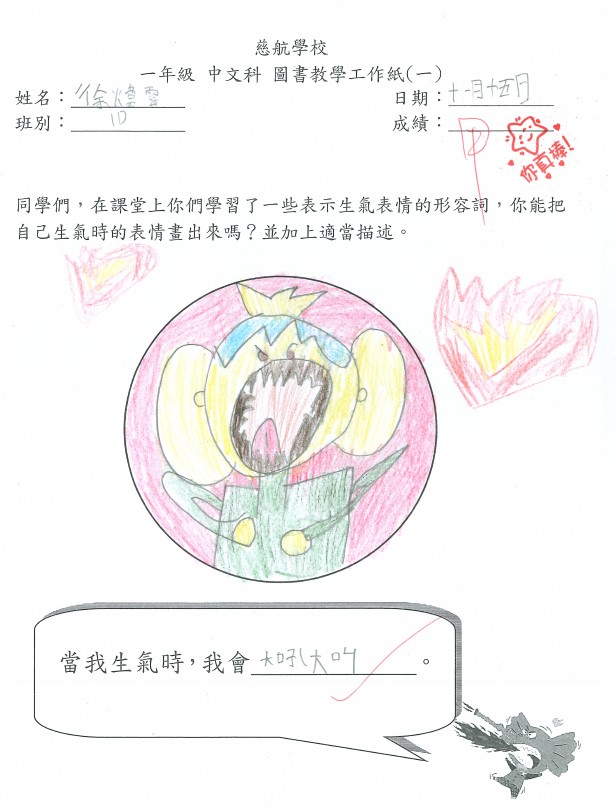 慈航學校
一年級 中文科 圖書教學工作紙(一)
姓名：徐煒翌 日期：十一月十五日
班別：1D 成績：
你真棒!
同學們，在課堂上你們學習了一些表示生氣表情的形容詞，你能把
自己生氣時的表情畫出來嗎？並加上適當描述。
當我生氣時，我會大吼大叫。